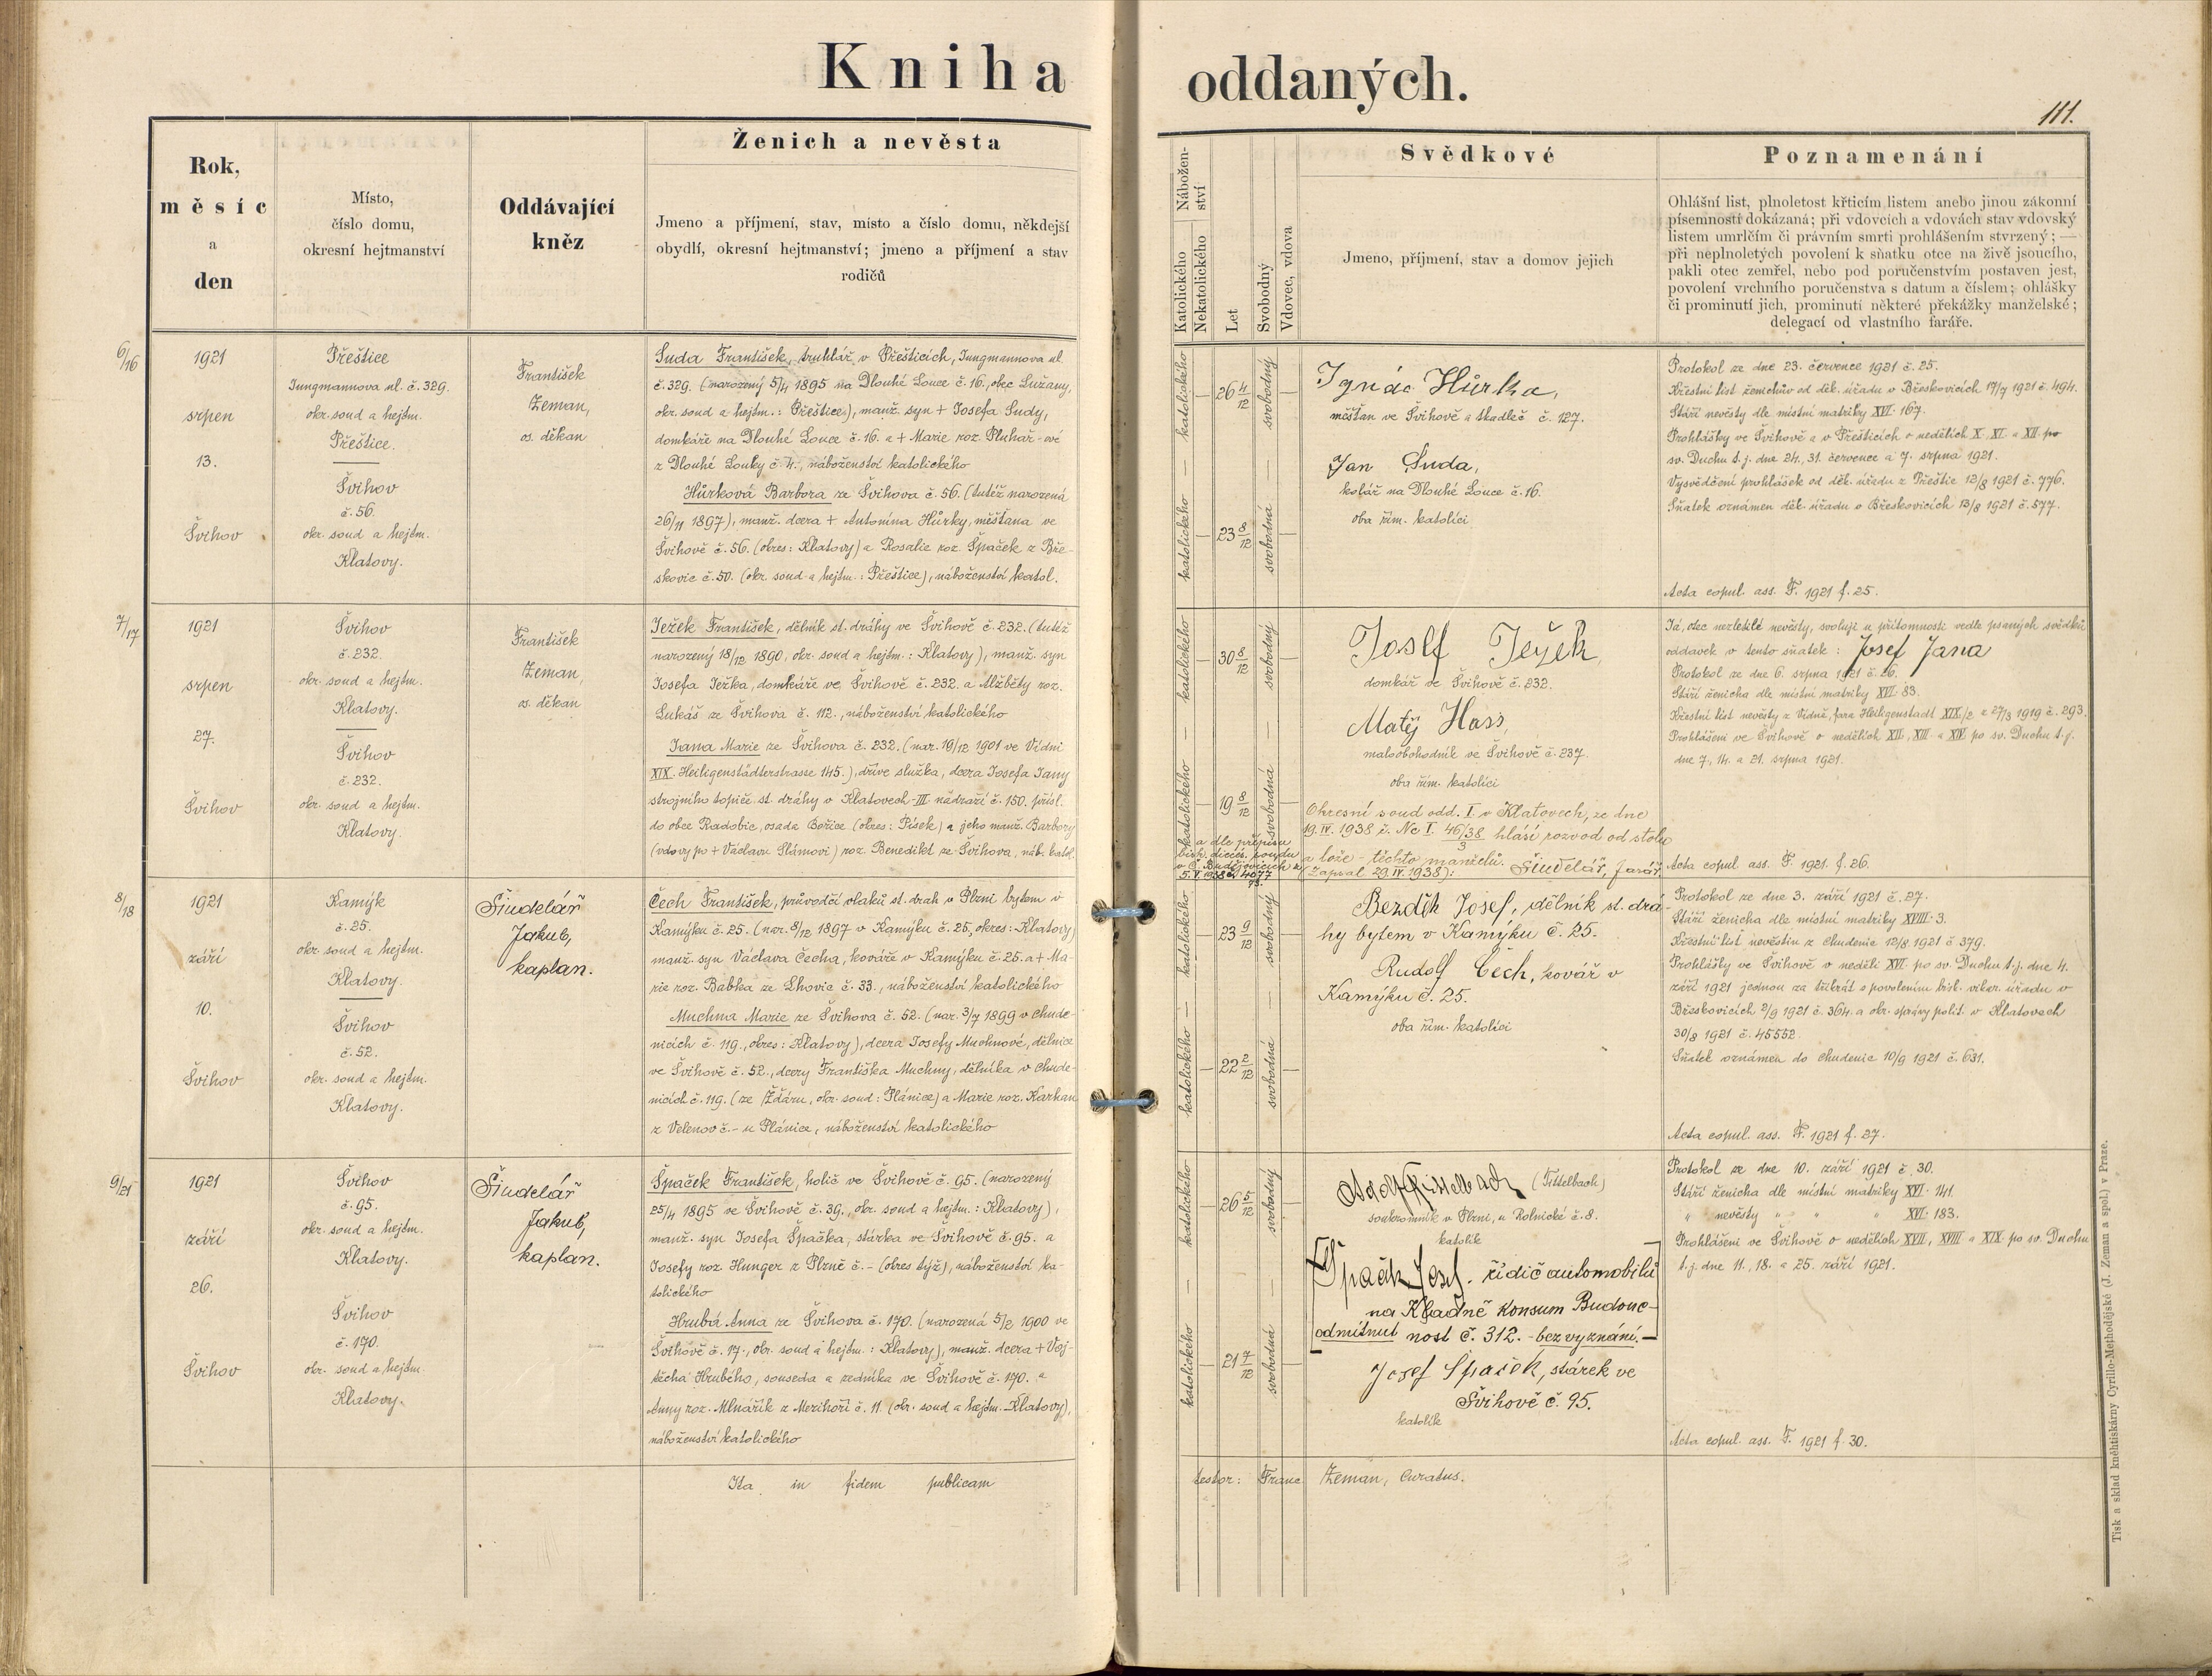 Kniha oddaných.
111.
Rok,
měsíc
a
den
Místo,
číslo domu,
okresní hejtmanství
Oddávající
kněz
Ženich a nevěsta
Jmeno a příjmení, stav, místo a číslo domu, někdejší
obydlí, okresní hejtmanství; jmeno a příjmení a stav
rodičů
Nábožen-
ství
Katolického
Nekatolického
Let
Svobodný
Vdovec, vdova
Svědkové
Jmeno, příjmení, stav a domov jejich
Poznamenání
Ohlášní list, plnoletost křticím listem anebo jinou zákonní
písemností dokázaná; při vdovcích a vdovách stav vdovský
listem umrlčím či právním smrti prohlášením stvrzený; —
při neplnoletých povolení k sňatku otce na živě jsoucího,
pakli otec zemřel, nebo pod poručenstvím postaven jest,
povolení vrchního poručenstva s datum a číslem; ohlášky
či prominutí jich, prominutí některé překážky manželské;
delegací od vlastního faráře.
6/16
1921
srpen
13.
Švihov
Přeštice
Jungmannova ul. č. 329.
okr. soud a hejtm.
Přeštice.
Švihov
č. 56.
okr. soud a hejtm.
Klatovy.
František
Zeman,
os. děkan
Suda František, truhlář v Přešticích, Jungmannova ul.
č. 329. (narozený 5/4 1895 na Dlouhé Louce č. 16., obec Lužany,
okr. soud a hejtm.: Přeštice), manž. syn + Josefa Sudy,
domkáře na Dlouhé Louce č. 16. a + Marie roz. Pluhař-ové
z Dlouhé Louky č. 4., náboženství katolického
Hůrková Barbora ze Švihova č. 56. (tutéž narozená
26/11 1897), manž. dcera + Antonína Hůrky, měšťana ve
Švihově č. 56. (okres: Klatovy) a Rosalie roz. Špaček z Bře-
skovic č. 50. (okr. soud a hejtm.: Přeštice), náboženství katol.
katolického
26 4/12
svobodný
katolického
23 8/12
svobodná
Ignác Hůrka,
měšťan ve Švihově a tkadleč č. 127.
Jan Suda,
kolář na Dlouhé Louce č. 16.
oba řím. katolíci
Protokol ze dne 23. července 1921 č. 25.
Křestní list ženichův od děk. úřadu v Břeskovicích 17/7 1921 č. 494.
Stáří nevěsty dle místní matriky XVI. 167.
Prohlášky ve Švihově a v Přešticích o nedělích X. XI. a XII. po
sv. Duchu t. j. dne 24., 31. července a 7. srpna 1921.
Vysvědčení prohlášek od děk. úřadu z Přeštic 12/8 1921 č. 776.
Sňatek oznámen děk. úřadu v Břeskovicích 13/8 1921 č. 577.
Acta copul. ass. F. 1921 f. 25.
7/17
1921
srpen
27.
Švihov
Švihov
č. 232.
okr. soud a hejtm.
Klatovy.
Švihov
č. 232.
okr. soud a hejtm.
Klatovy.
František
Zeman,
os. děkan
Ježek František, dělník st. dráhy ve Švihově č. 232. (tutéž
narozený 18/12 1890, okr. soud a hejtm.: Klatovy), manž. syn
Josefa Ježka, domkáře ve Švihově č. 232. a Alžběty roz.
Lukáš ze Švihova č. 112., náboženství katolického
Jana Marie ze Švihova č. 232. (nar. 19/12 1901 ve Vídni
XIX. Heiligenstädterstrasse 145.), dříve služka, dcera Josefa Jany
strojního topiče st. dráhy v Klatovech-III nádraží č. 150. přísl.
do obce Radobic, osada Božice (okres: Písek) a jeho manž. Barbory
(vdovy po + Václavu Slámovi) roz. Benedikt ze Švihova, náb. katol.
katolického
30 8/12
svobodný
katolického
19 8/12
svobodná
Josef Ježek
domkář ve Švihově č. 232.
Matěj Hass,
maloobchodník ve Švihově č. 237.
oba řím. katolíci
Okresní soud odd. I. v Klatovech, ze dne
19. IV. 1938 č. Nc I. 46/38 3 hlásí rozvod od stolu
a lože - těchto manželů. Šindelář, farář.
(Zapsal 29. IV. 1938):
a dle přípisu
bisk. dieces. soudu
v Č. Budějovicích z
5. V. 1938 č. 4077
Já, otec nezletilé nevěsty, svoluji u přítomnosti vedle psaných svědků
oddavek v tento sňatek: Josef Jana
Protokol ze dne 6. srpna 1921 č. 26.
Stáří ženicha dle místní matriky XVI. 83.
Křestní list nevěsty z Vídně, fara Heiligenstadt XIX/2 a 27/3 1919 č. 293.
Prohlášeni ve Švihově o nedělích XII., XIII. a XIV. po sv. Duchu t. j.
dne 7., 14. a 21. srpna 1921.
Acta copul. ass. F. 1921. f. 26.
8/18
1921
září
10.
Švihov
Kamýk
č. 25.
okr. soud a hejtm.
Klatovy.
Švihov
č. 52.
okr. soud a hejtm.
Klatovy.
Šindelář
Jakub,
kaplan.
Čech František, průvodčí vlaků st. drah v Plzni bytem v
Kamýku č. 25. (nar. 8/12 1897 v Kamýku č. 25, okres: Klatovy)
manž. syn Václava Čecha, kováře v Kamýku č. 25. a + Ma-
rie roz. Babka ze Lhovic č. 33., náboženství katolického
Muchna Marie ze Švihova č. 52. (nar. 3/7 1899 v Chude-
nicích č. 119., okres: Klatovy), dcera Josefy Muchnové, dělnice
ve Švihově č. 52., dcery Františka Muchny, dělníka v Chude-
nicích č. 119. (ze Žďáru, okr. soud: Plánice) a Marie roz. Karhan
z Velenov č. - u Plánice, náboženství katolického
katolického
23 9/12
svobodný
katolického
22 2/12
svobodná
Bezděk Josef, dělník st. drá-
hy bytem v Kamýku č. 25.
Rudolf Čech, kovář v
Kamýku č. 25.
oba řím. katolíci
Protokol ze dne 3. září 1921 č. 27.
Stáří ženicha dle místní matriky XVIII. 3.
Křestní list nevěstin z Chudenic 12/8 1921 č. 379.
Prohlášky ve Švihově v neděli XVI. po sv. Duchu t. j. dne 4.
září 1921 jednou za třikrát s povolením bisk. vikar. úřadu v
Břeskovicích 2/9 1921 č. 364. a okr. správy polit. v Klatovech
30/8 1921 č. 45552.
Sňatek oznámen do Chudenic 10/9 1921 č. 631.
Acta copul. ass. F. 1921 f. 27.
9/21
1921
září
26.
Švihov
Švihov
č. 95.
okr. soud a hejtm.
Klatovy.
Švihov
č. 170.
okr. soud a hejtm.
Klatovy.
Šindelář
Jakub,
kaplan.
Špaček František, holič ve Švihově č. 95. (narozený
25/4 1895 ve Švihově č. 39., okr. soud a hejtm.: Klatovy),
manž. syn Josefa Špačka, stárka ve Švihově č. 95. a
Josefy roz. Hunger z Plzně č. - (okres týž), náboženství ka-
tolického
Hrubá Anna ze Švihova č. 170. (narozená 5/2 1900 ve
Švihově č. 17., okr. soud a hejtm.: Klatovy), manž. dcera + Voj-
těcha Hrubého, souseda a zedníka ve Švihově č. 170. a
Anny roz. Mlnářík z Mezihoří č. 11. (okr. soud a hejtm. Klatovy),
náboženství katolického
katolického
26 5/12
svobodný
katolického
21 7/12
svobodná
(Tittelbach)
soukromník v Plzni, u Rolnické č. 8.
katolík
Špaček Josef. řidič automobilů
na Kladně Konsum Budouc-
odmítnut nost č. 312. - bez vyznání. -
Josef Špaček, stárek ve
Švihově č. 95.
katolík
Protokol ze dne 10. září 1921 č. 30.
Stáří ženicha dle místní matriky XVI. 141.
" nevěsty " " " XVI. 183.
Prohlášeni ve Švihově o nedělích XVII., XVIII. a XIX. po sv. Duchu
t. j. dne 11., 18. a 25. září 1921.
Acta copul. ass. F. 1921 f. 30.
Ita in fidem publicam testor: Franc Zeman, Curatus.
Tisk a sklad kněhtiskárny Cyrillo-Methodějské (J. Zeman a spol.) v Praze.